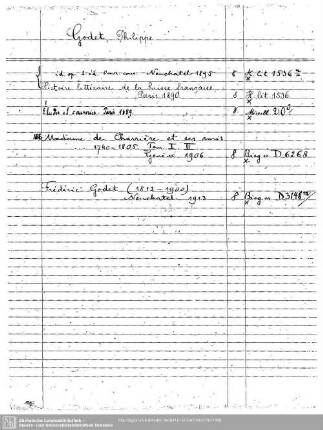 Godet Philippe
id. op. 2. éd. Neuchatel 1895 8 H. lit 1536
Histoire littéraire de la Suisse française.
Paris 1890 8 H. lit 1536
Etudes et causeries. Paris 1889.
Madame de Charrière et ses amis
1740-1805. Tom I II
Genève 1906 8 Biogr. D 6268
Frédéric Godet (1812-1900)
Neuchatel 1913 8 Biogr. D 3148
Sächsische Landesbibliothek
Staats- und Universitätsbibliothek Dresden